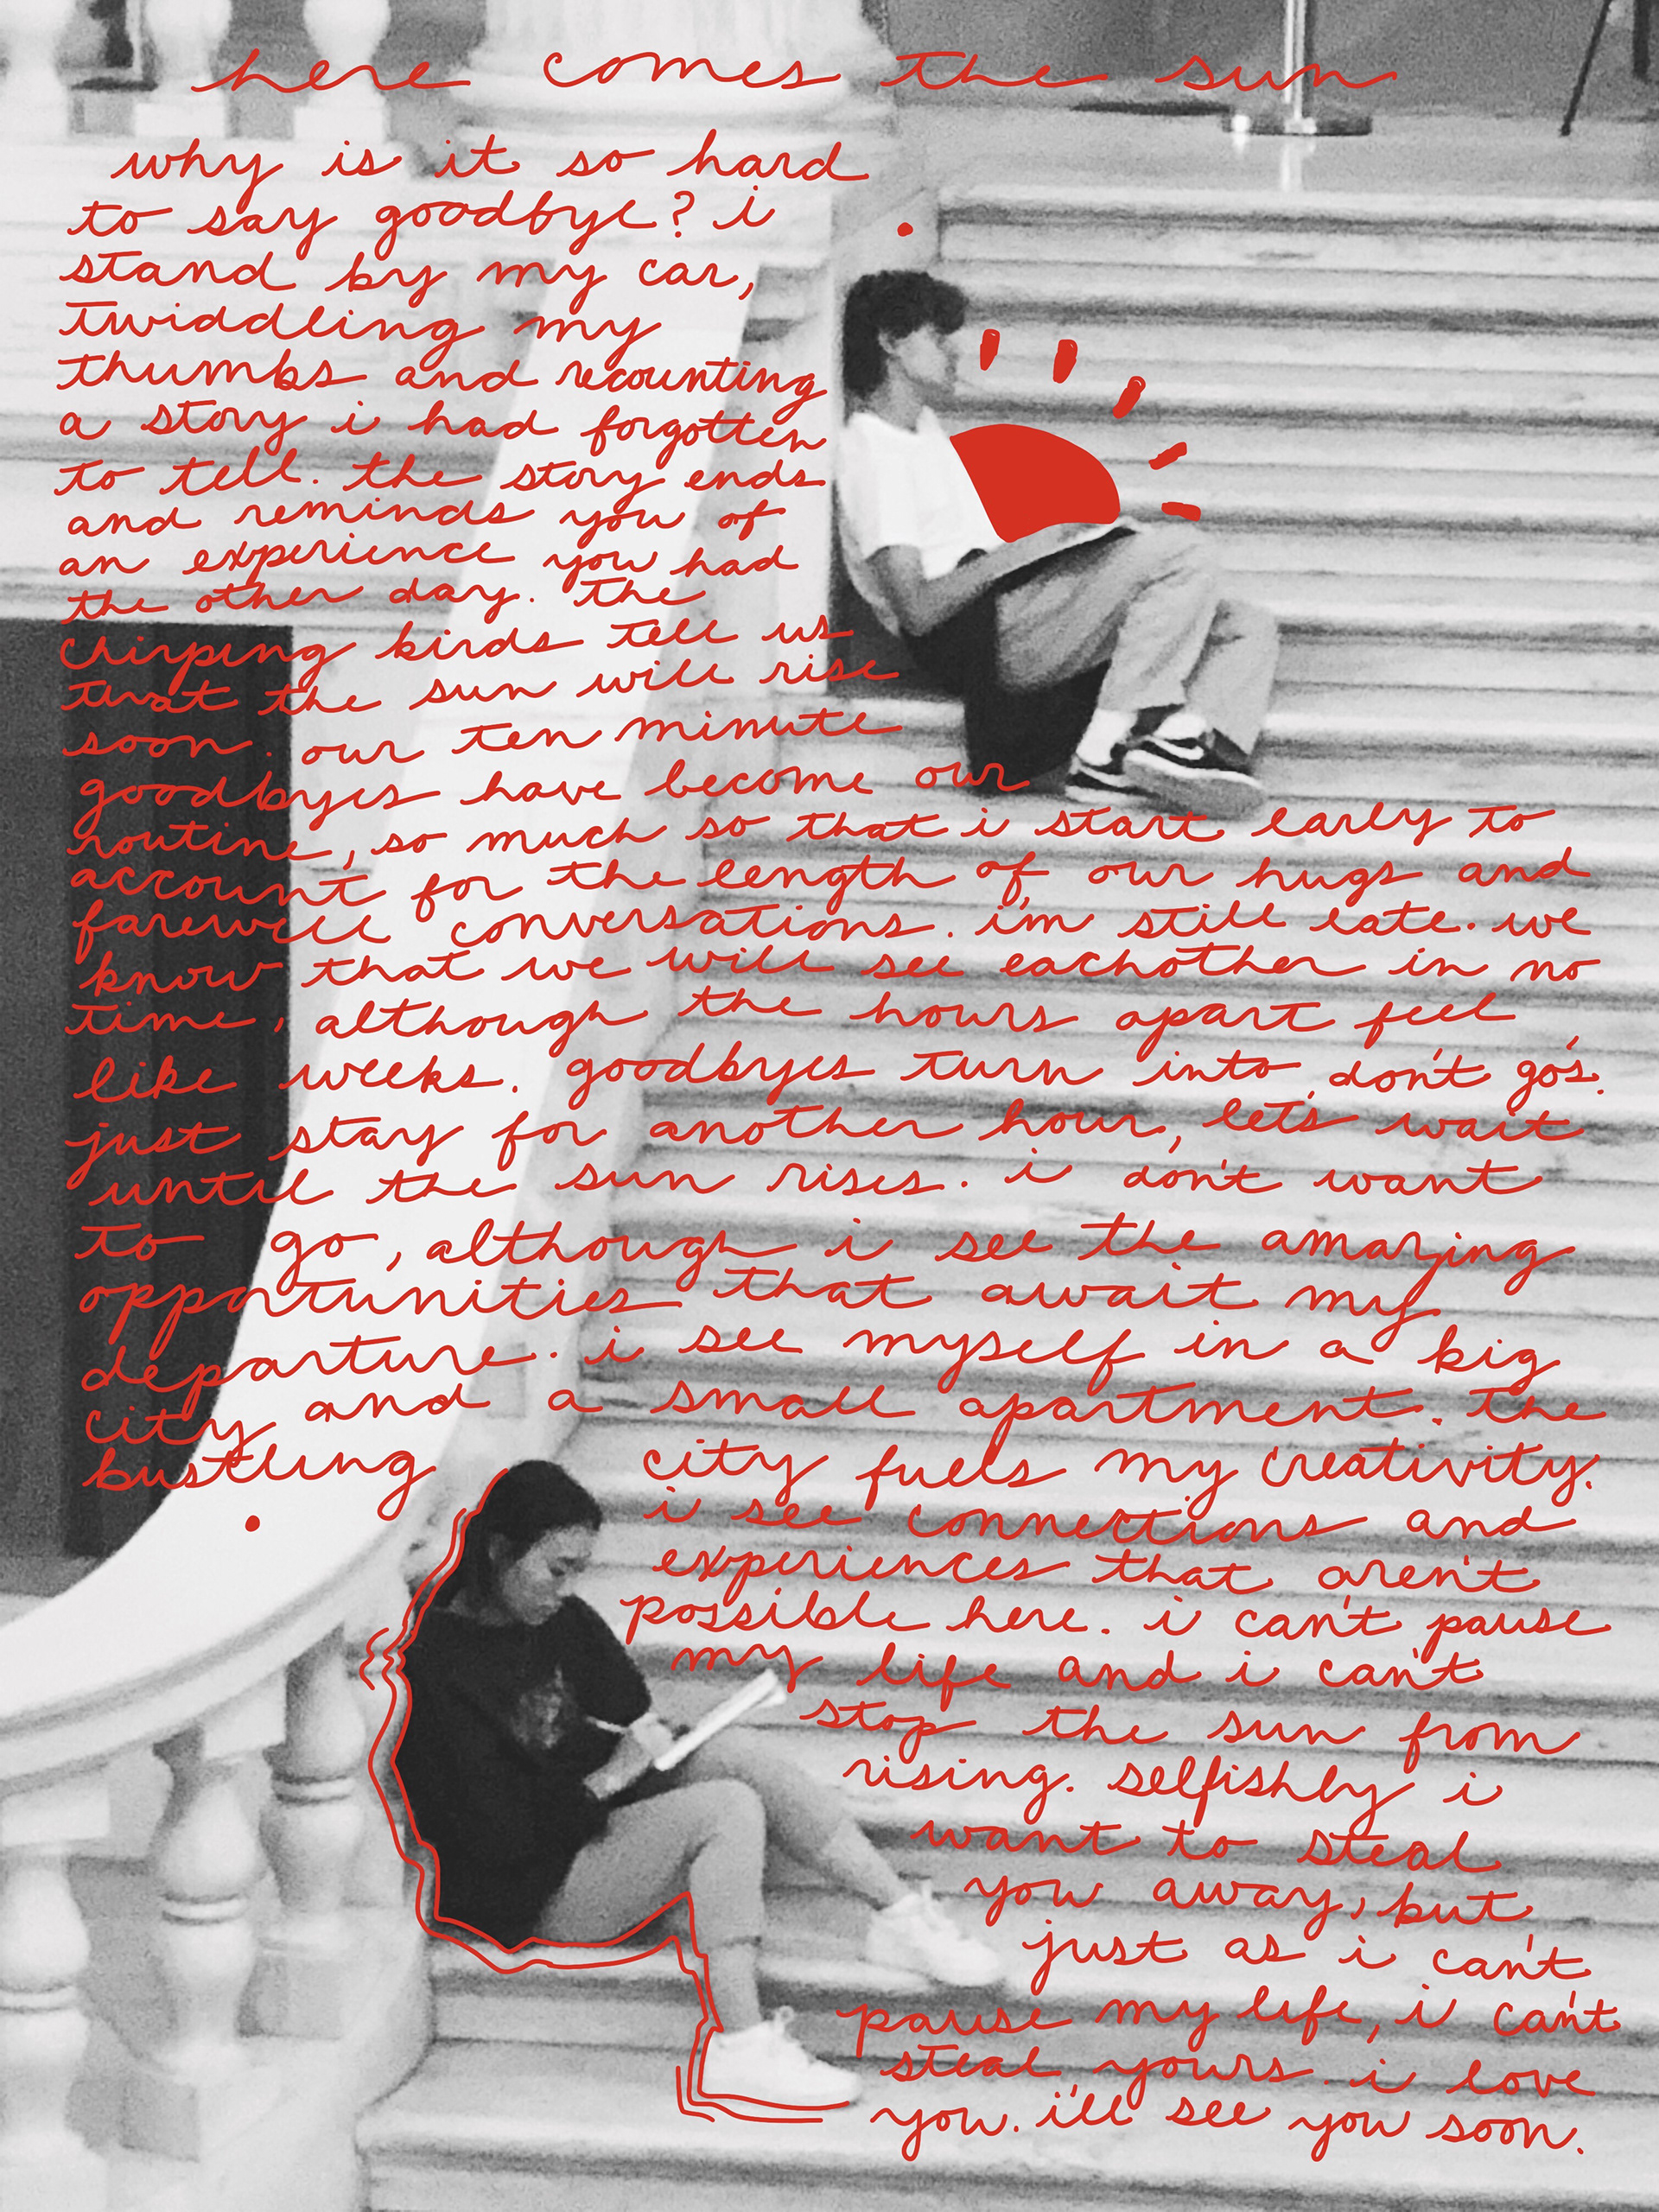 here comes the sun
why is it so hard
to say goodbye? i
stand by my car,
twiddling my
thumbs and recounting
a story i had forgotten
to tell. the story ends
and reminds you of
an experience you had
the other day. the
chirping birds tell us
that the sun will rise
soon. our ten minute
goodbyes have become our
routine, so much so that i start early to
account for the length of our hugs and
farewell conversations. i'm still late. we
know that we will see eachother in no
time, although the hours apart feel
like weeks. goodbyes turn into don't go's.
just stay for another hour, let's wait
until the sun rises. i don't want
to go, although i see the amazing
opportunities that await my
departure. i see myself in a big
city and a small apartment. the
bustling city fuels my creativity.
i see connections and
experiences that aren't
possible here. i can't pause
my life and i can't
stop the sun from
rising. selfishly i
want to steal
you away, but
just as i can't
pause my life, i can't
steal yours. i love
you. i'll see you soon.